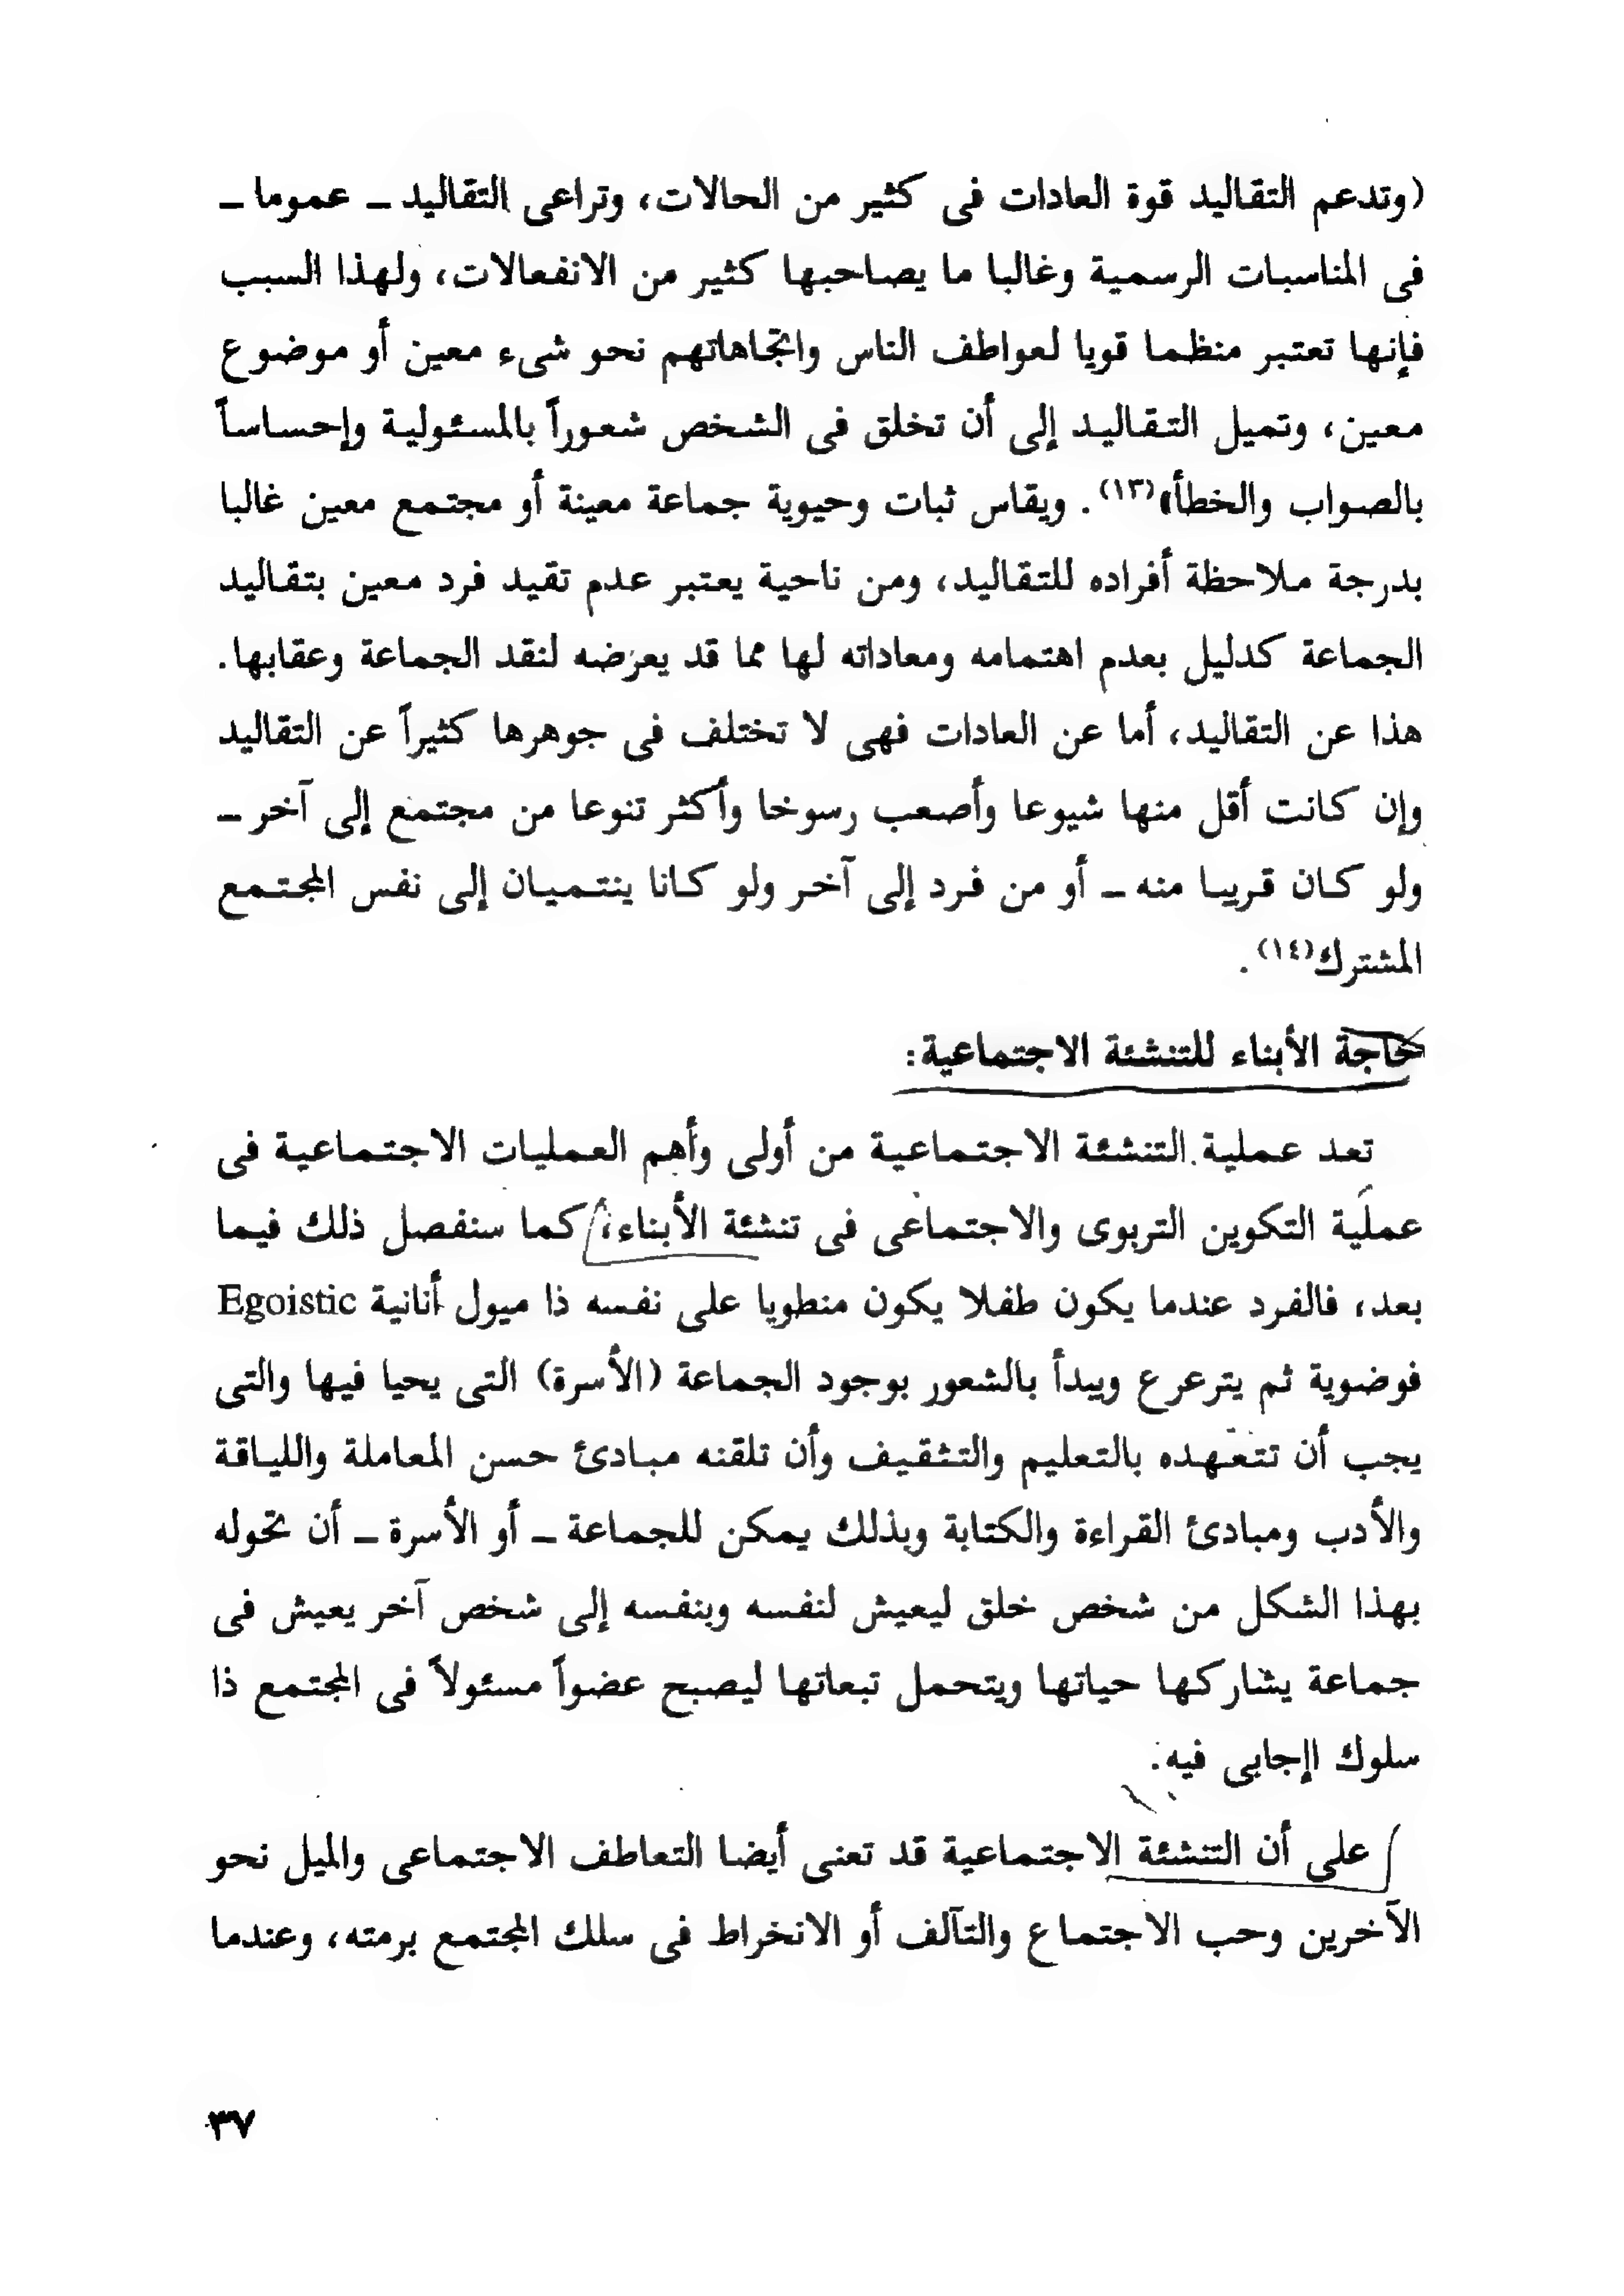 (وتدعم التقاليد قوة العادات فى كثير من الحالات، وتراعى التقاليد ـ عموما ـ
فى المناسبات الرسمية وغالبا ما يصاحبها كثير من الانفعالات، ولهذا السبب
فإنها تعتبر منظما قويا لعواطف الناس واتجاهاتهم نحو شىء معين أو موضوع
معين، وتميل التقاليد إلى أن تخلق فى الشخص شعوراً بالمسئولية وإحساساً
بالصواب والخطأ»(١٣). ويقاس ثبات وحيوية جماعة معينة أو مجتمع معين غالبا
بدرجة ملاحظة أفراده للتقاليد، ومن ناحية يعتبر عدم تقيد فرد معين بتقاليد
الجماعة كدليل بعدم اهتمامه ومعاداته لها مما قد يعرضه لنقد الجماعة وعقابها.
هذا عن التقاليد، أما عن العادات فهى لا تختلف فى جوهرها كثيراً عن التقاليد
وإن كانت أقل منها شيوعا وأصعب رسوخا وأكثر تنوعا من مجتمع إلى آخر ـ
ولو كان قريبا منه ـ أو من فرد إلى آخر ولو كانا ينتميان إلى نفس المجتمع
المشترك(١٤).
حاجة الأبناء للتنشئة الاجتماعية:
تعد عملية التنشئة الاجتماعية من أولى وأهم العمليات الاجتماعية فى
عملية التكوين التربوى والاجتماعى فى تنشئة الأبناء، كما سنفصل ذلك فيما
بعد، فالفرد عندما يكون طفلا يكون منطويا على نفسه ذا ميول أنانية Egoistic
فوضوية ثم يترعرع ويبدأ بالشعور بوجود الجماعة (الأسرة) التى يحيا فيها والتى
يجب أن تتعهده بالتعليم والتثقيف وأن تلقنه مبادئ حسن المعاملة واللياقة
والأدب ومبادئ القراءة والكتابة وبذلك يمكن للجماعة ـ أو الأسرة ـ أن تحوله
بهذا الشكل من شخص خلق ليعيش لنفسه وبنفسه إلى شخص آخر يعيش فى
جماعة يشاركها حياتها ويتحمل تبعاتها ليصبح عضواً مسئولاً فى المجتمع ذا
سلوك اإجابى فيه.
على أن التنشئة الاجتماعية قد تعنى أيضا التعاطف الاجتماعى والميل نحو
الآخرين وحب الاجتماع والتآلف أو الانخراط فى سلك المجتمع برمته، وعندما
٣٧